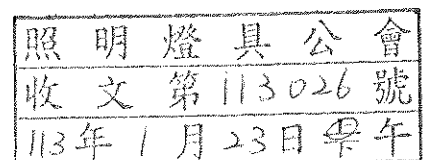 照明燈具公會
收文第113026號
113年1月23日午